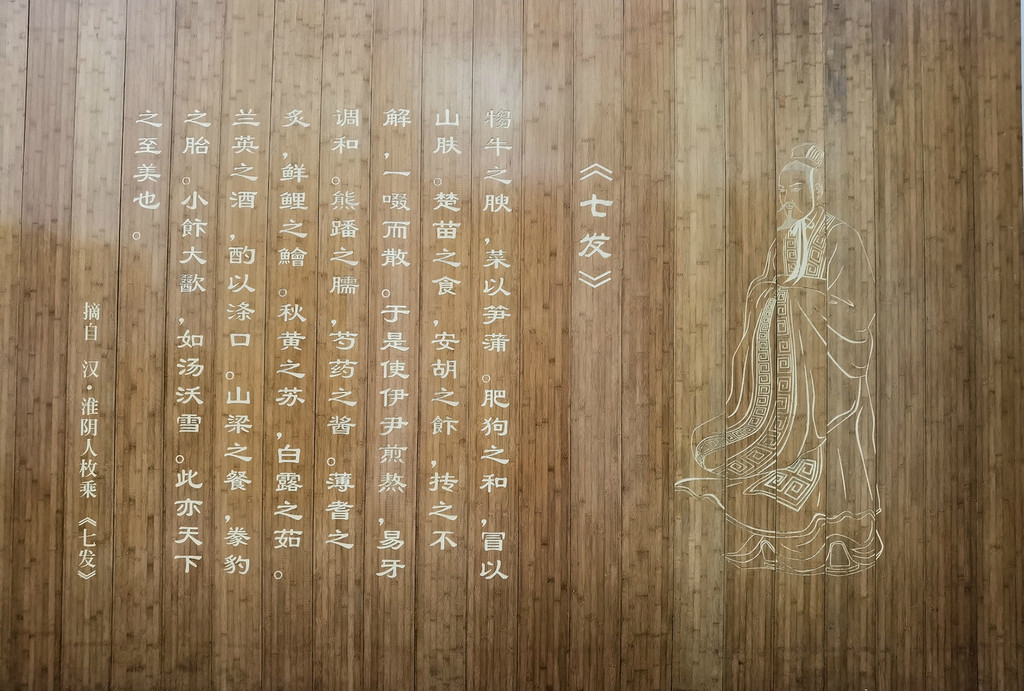 《七发》
犓牛之腴,菜以笋蒲。肥狗之和,冒以
山肤。楚苗之食,安胡之飰,抟之不
解,一啜而散。于是使伊尹煎熬,易牙
调和。熊蹯之臑,芍药之酱。薄耆之
炙,鲜鲤之鱠。秋黄之苏,白露之茹。
兰英之酒,酌以涤口。山梁之餐,豢豹
之胎。小飰大歠,如汤沃雪。此亦天下
之至美也。
摘自 汉·淮阴人枚乘《七发》